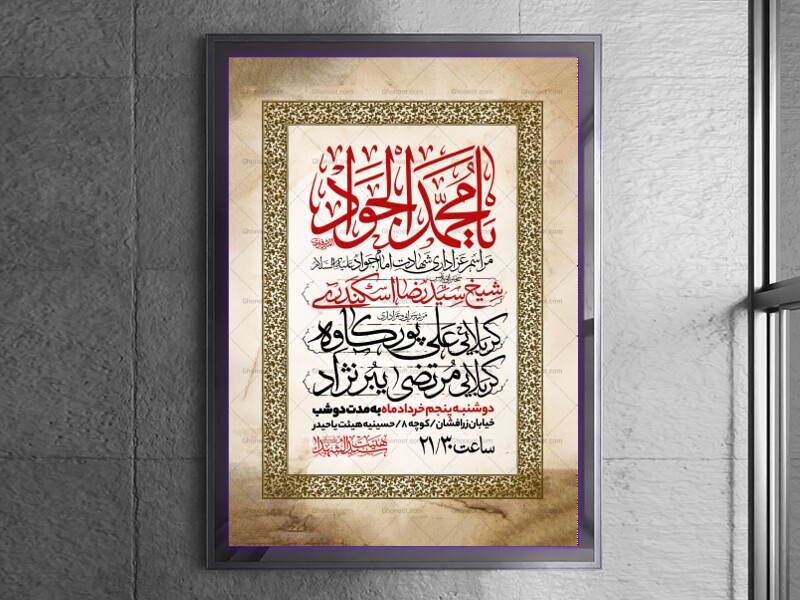 یا محمد الجواد
مراسم عزاداری شهادت امام جواد علیه السلام
شیخ سیدرضا اسکندری
کربلایی علی پورکاوه
کربلایی مرتضی ببرنژاد
دوشنبه پنجم خرداد ماه به مدت دو شب
خیابان زرافشان / کوچه ۸ / حسینیه هیئت یا حیدر
ساعت ۲۱/۳۰
Ghonoot.com